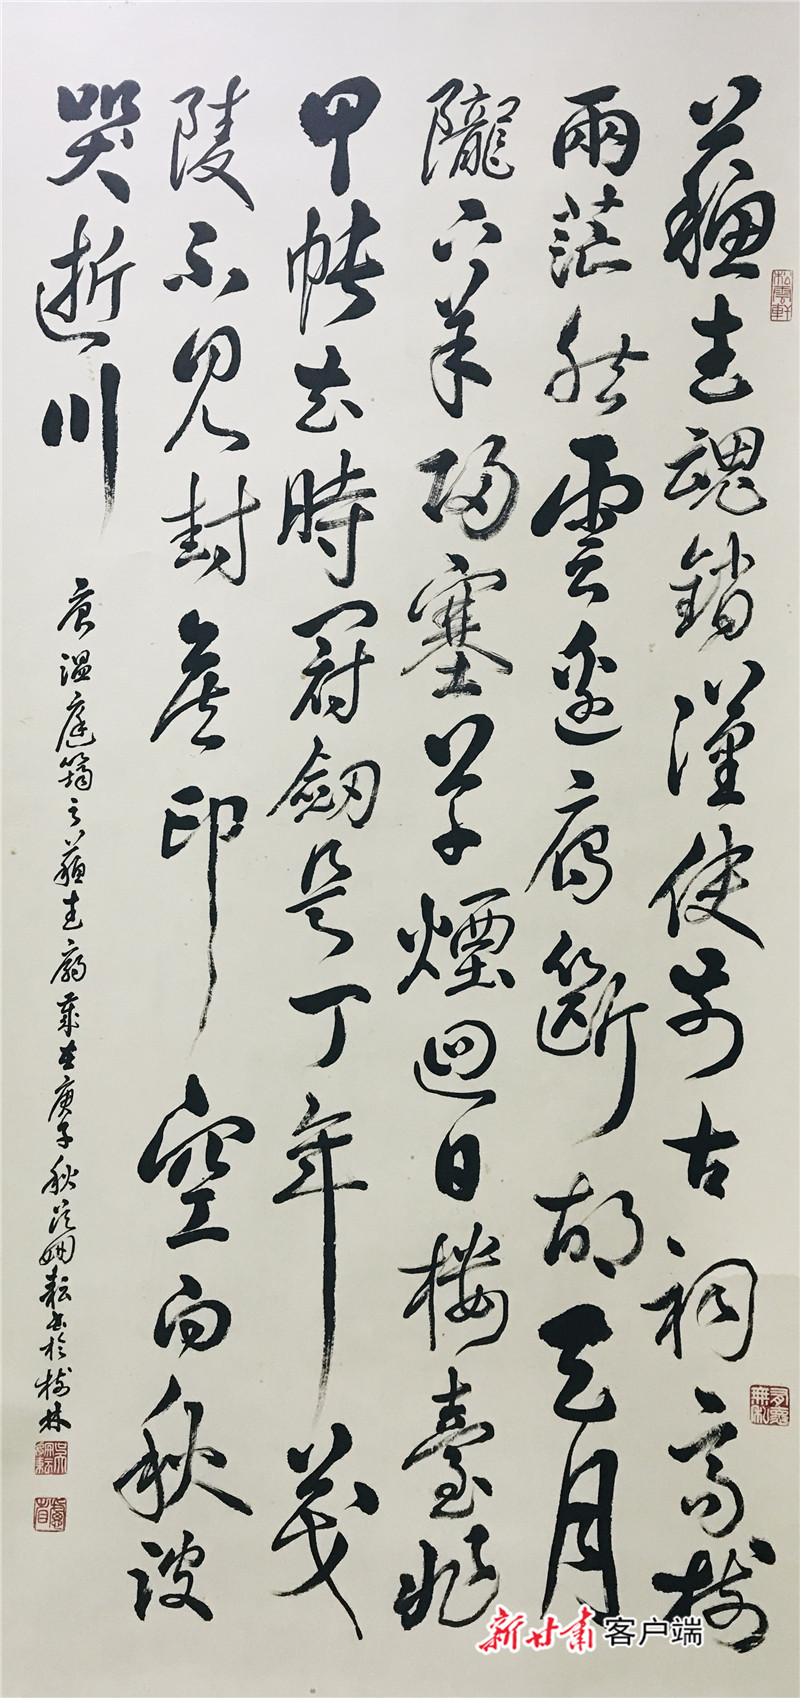 蘇武魂銷漢使前古祠高樹
兩茫然雲邊雁斷胡天月
隴上羊歸塞草煙迴日樓臺非
甲帳去時冠劍是丁年茂
陵不見封侯印空向秋波
哭逝川
唐溫庭筠之蘇武廟歲在庚子秋吴細耘書於樹林
松雲軒
新甘肃客户端